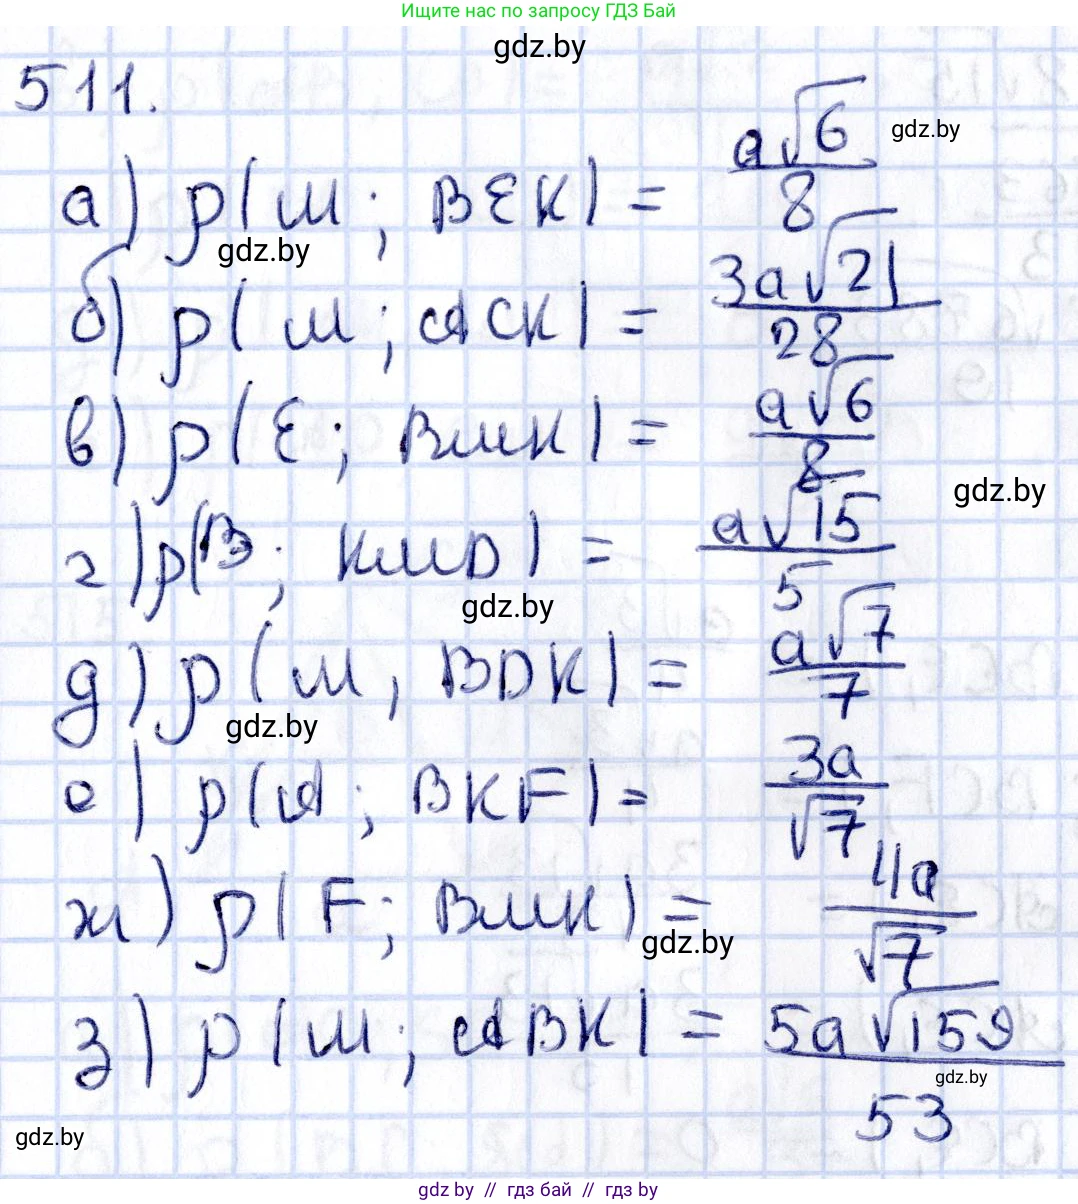 Ищите нас по запросу ГДЗ Бай
gdz.by
511.
gdz.by
а) ρ(M; BEK) = a√6/8
gdz.by
б) ρ(M; ACK) = 3a√21/28
в) ρ(E; BMK) = a√6/8
gdz.by
г) ρ(B; KMD) = a√15/5
gdz.by
д) ρ(M, BDK) = a√7/7
gdz.by
е) ρ(A; BKF) = 3a/√7
ж) ρ(F; BMK) = 4a/√7
gdz.by
з) ρ(M; ABK) = 5a√159/53
gdz.by
gdz.by
gdz.by // гдз бай // gdz by